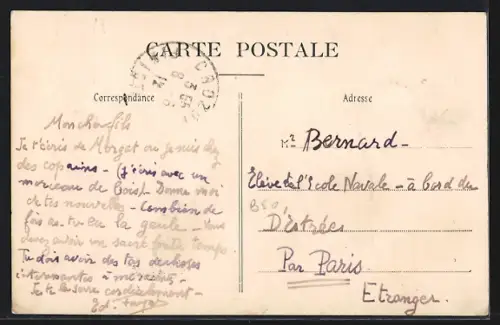 CARTE POSTALE
Correspondance
Adresse
CROZON
Mon cher fils
Je t'écris de Morgat où je suis chez
des copains - (j'écris avec un
morceau de bois) Donne moi
de tes nouvelles - Combien de
fois as-tu eu la gueule - Vous
devez avoir un sacré foutu temps
Tu dois avoir des tas de choses
intéressantes à me raconter -
Je te serre cordialement -
Ed.
Mr Bernard -
Elève de l'Ecole Navale - à bord du
D'Estrées
Par Paris
Etranger.